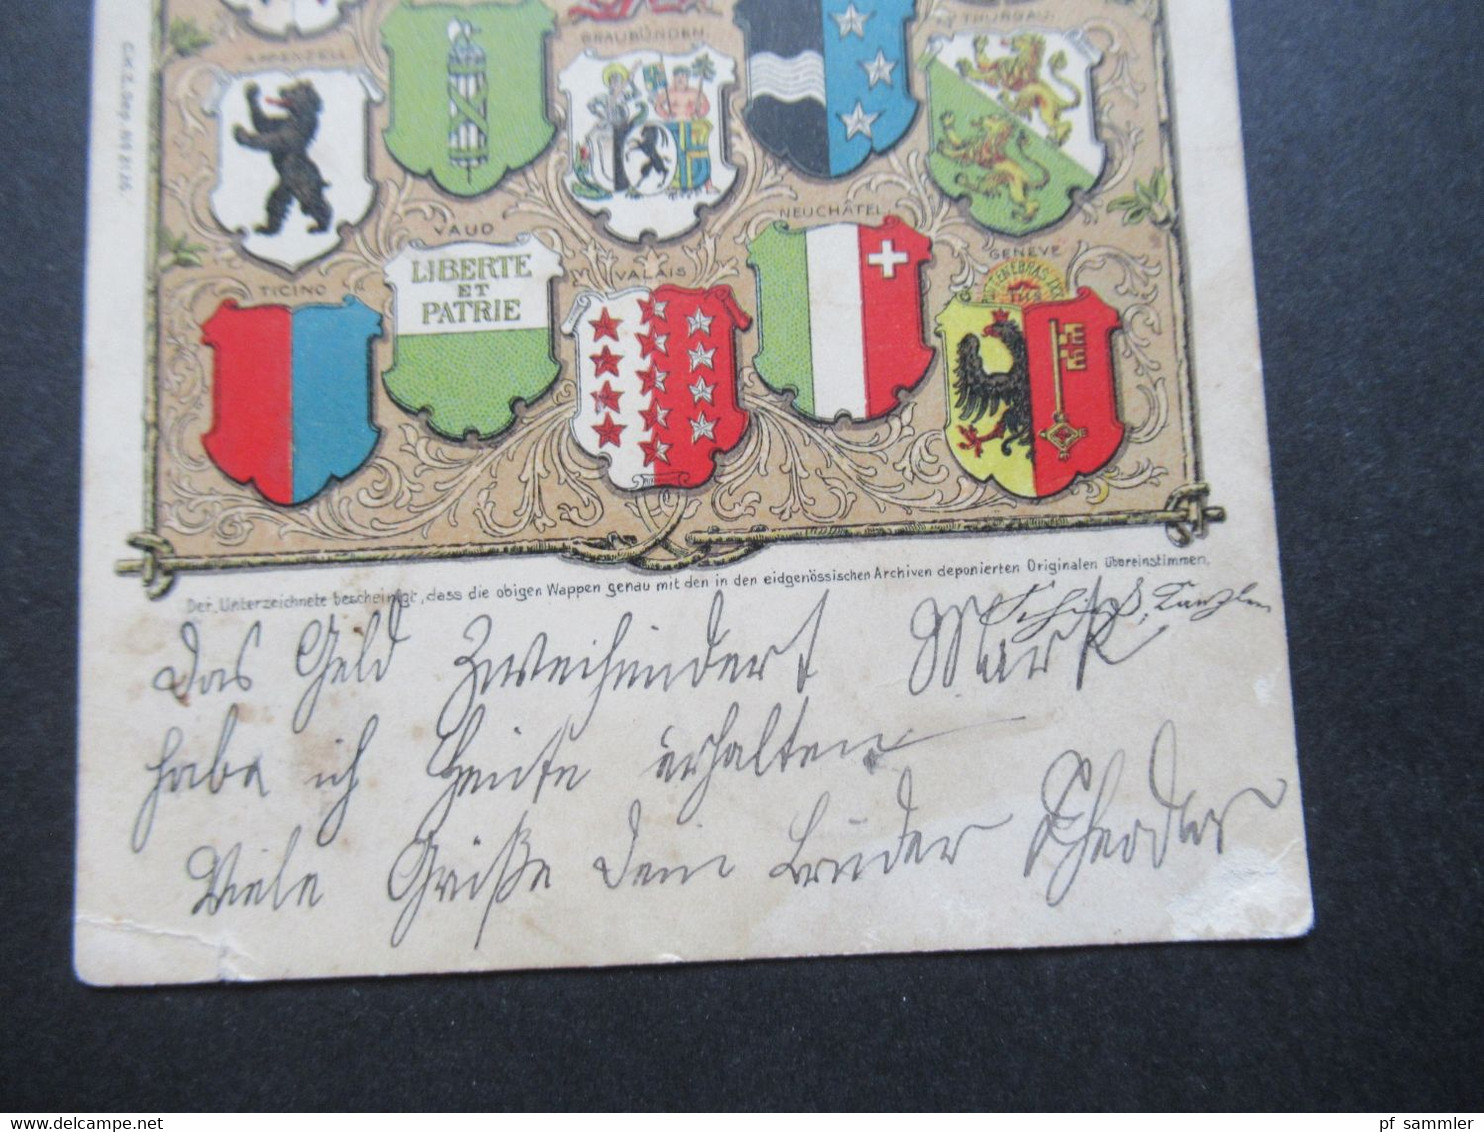 THURGAU.
GRAUBÜNDEN.
APPENZELL
NEUCHÂTEL
VAUD
LIBERTE
ET
PATRIE
GENÈVE
VALAIS
TICINO
Der Unterzeichnete bescheinigt, dass die obigen Wappen genau mit den in den eidgenössischen Archiven deponierten Originalen übereinstimmen.
das Geld Zweihundert Mark
habe ich heute erhalten
Viele Grüße Dein Bruder Theodor
pf_sammler